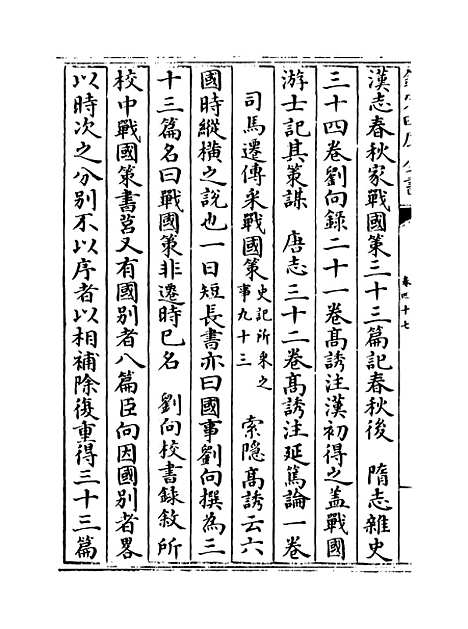 漢志春秋家戰國策三十三篇記春秋後　隋志雜史
三十四卷劉向錄二十一卷髙誘注漢初得之蓋戰國
游士記其策謀　唐志三十二卷髙誘注延篤論一卷
司馬遷傳采戰國策史記所采之事九十三　索隠髙誘云六
國時縱橫之說也一曰短長書亦曰國事劉向撰為三
十三篇名曰戰國策非遷時已名　劉向校書録敘所
校中戰國策書莒又有國别者八篇臣向因國别者畧
以時次之分别不以序者以相補除復重得三十三篇
卷四十七